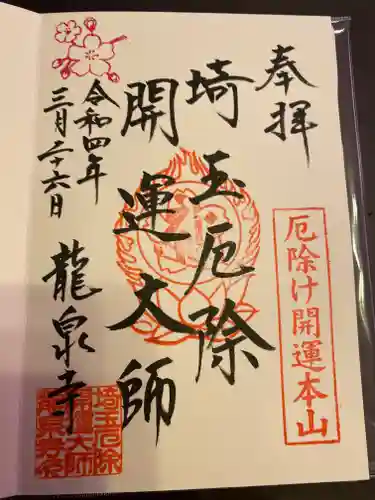 奉拝
厄除け開運本山
埼玉厄除
開運大師
令和四年
三月二十六日
龍泉寺
埼玉厄除
開運大師
龍泉寺